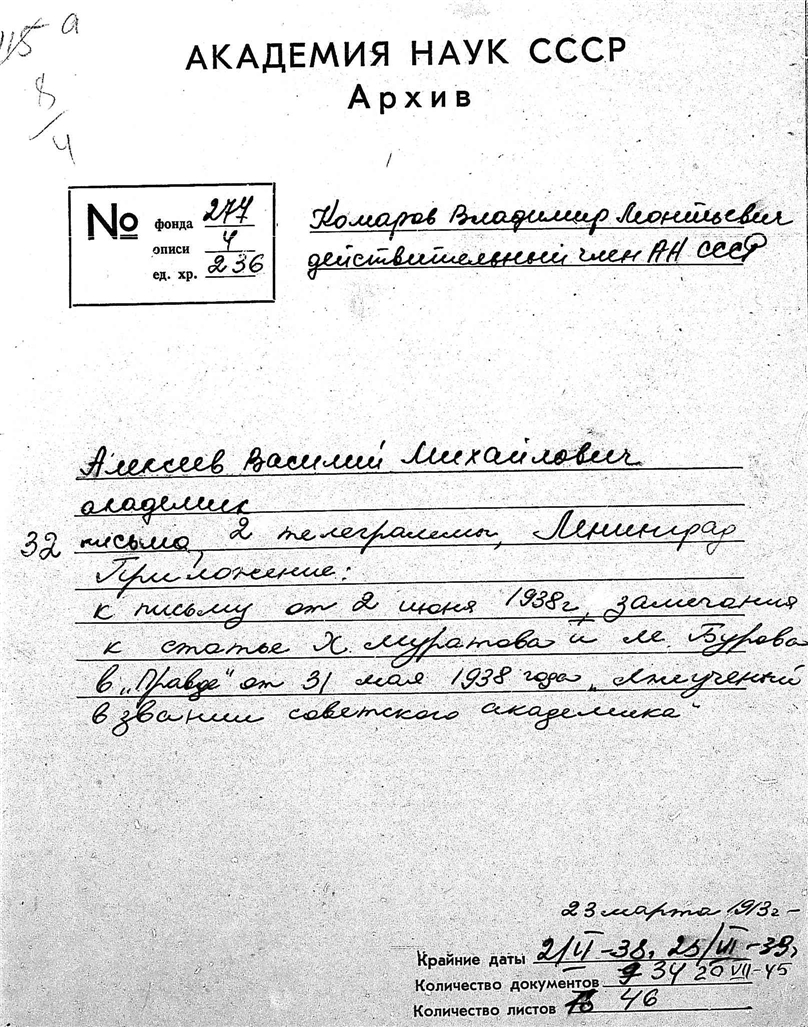 115 а
8/4
АКАДЕМИЯ НАУК СССР
Архив
№ фонда 277
описи 4
ед. хр. 236
Комаров Владимир Леонтьевич
действительный член АН СССР
Алексеев Василий Михайлович
академик
32 письма, 2 телеграммы, Ленинград
Приложение:
к письму от 2 июня 1938 г., замечания
к статье Х. Муратова и М. Бурова
в „Правде" от 31 мая 1938 года „Лжеученый
в звании советского академика"
23 марта 1913 г –
Крайние даты 2/II-38, 25/VI-39,
20 VII-45
Количество документов 34
Количество листов 46